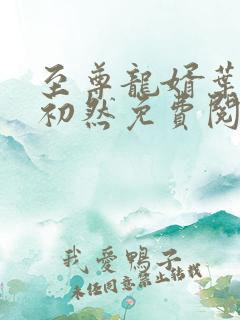 至尊龍婿葉
初然免費閱
我愛鴨子
未任同意禁止轉載